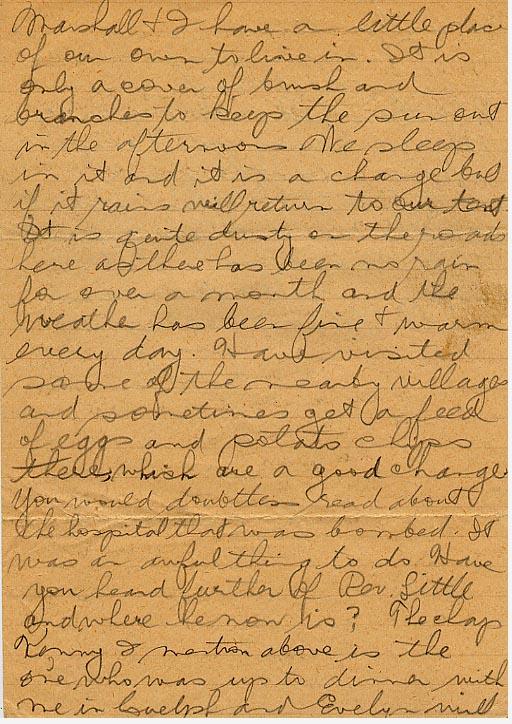 Marshall & I have a little place
of our own to live in. It is
only a cover of brush and
branches to keep the sun out
in the afternoons We sleep
in it and it is a change but
if it rains will return to our tent.
It is quite dusty on the roads
here as there has been no rain
for over a month and the
weather has been fine & warm
every day. Have visited
some of the nearby villages
and sometimes get a feed
of eggs and potato chips
there, which are a good change
You would doubtless read about
the hospital that was bombed. It
was an awful thing to do Have
you heard further of Rev. Little
and where he now is? The chap
I mention above is the
one who was up to dinner with
me in Guelph and Evelyn will